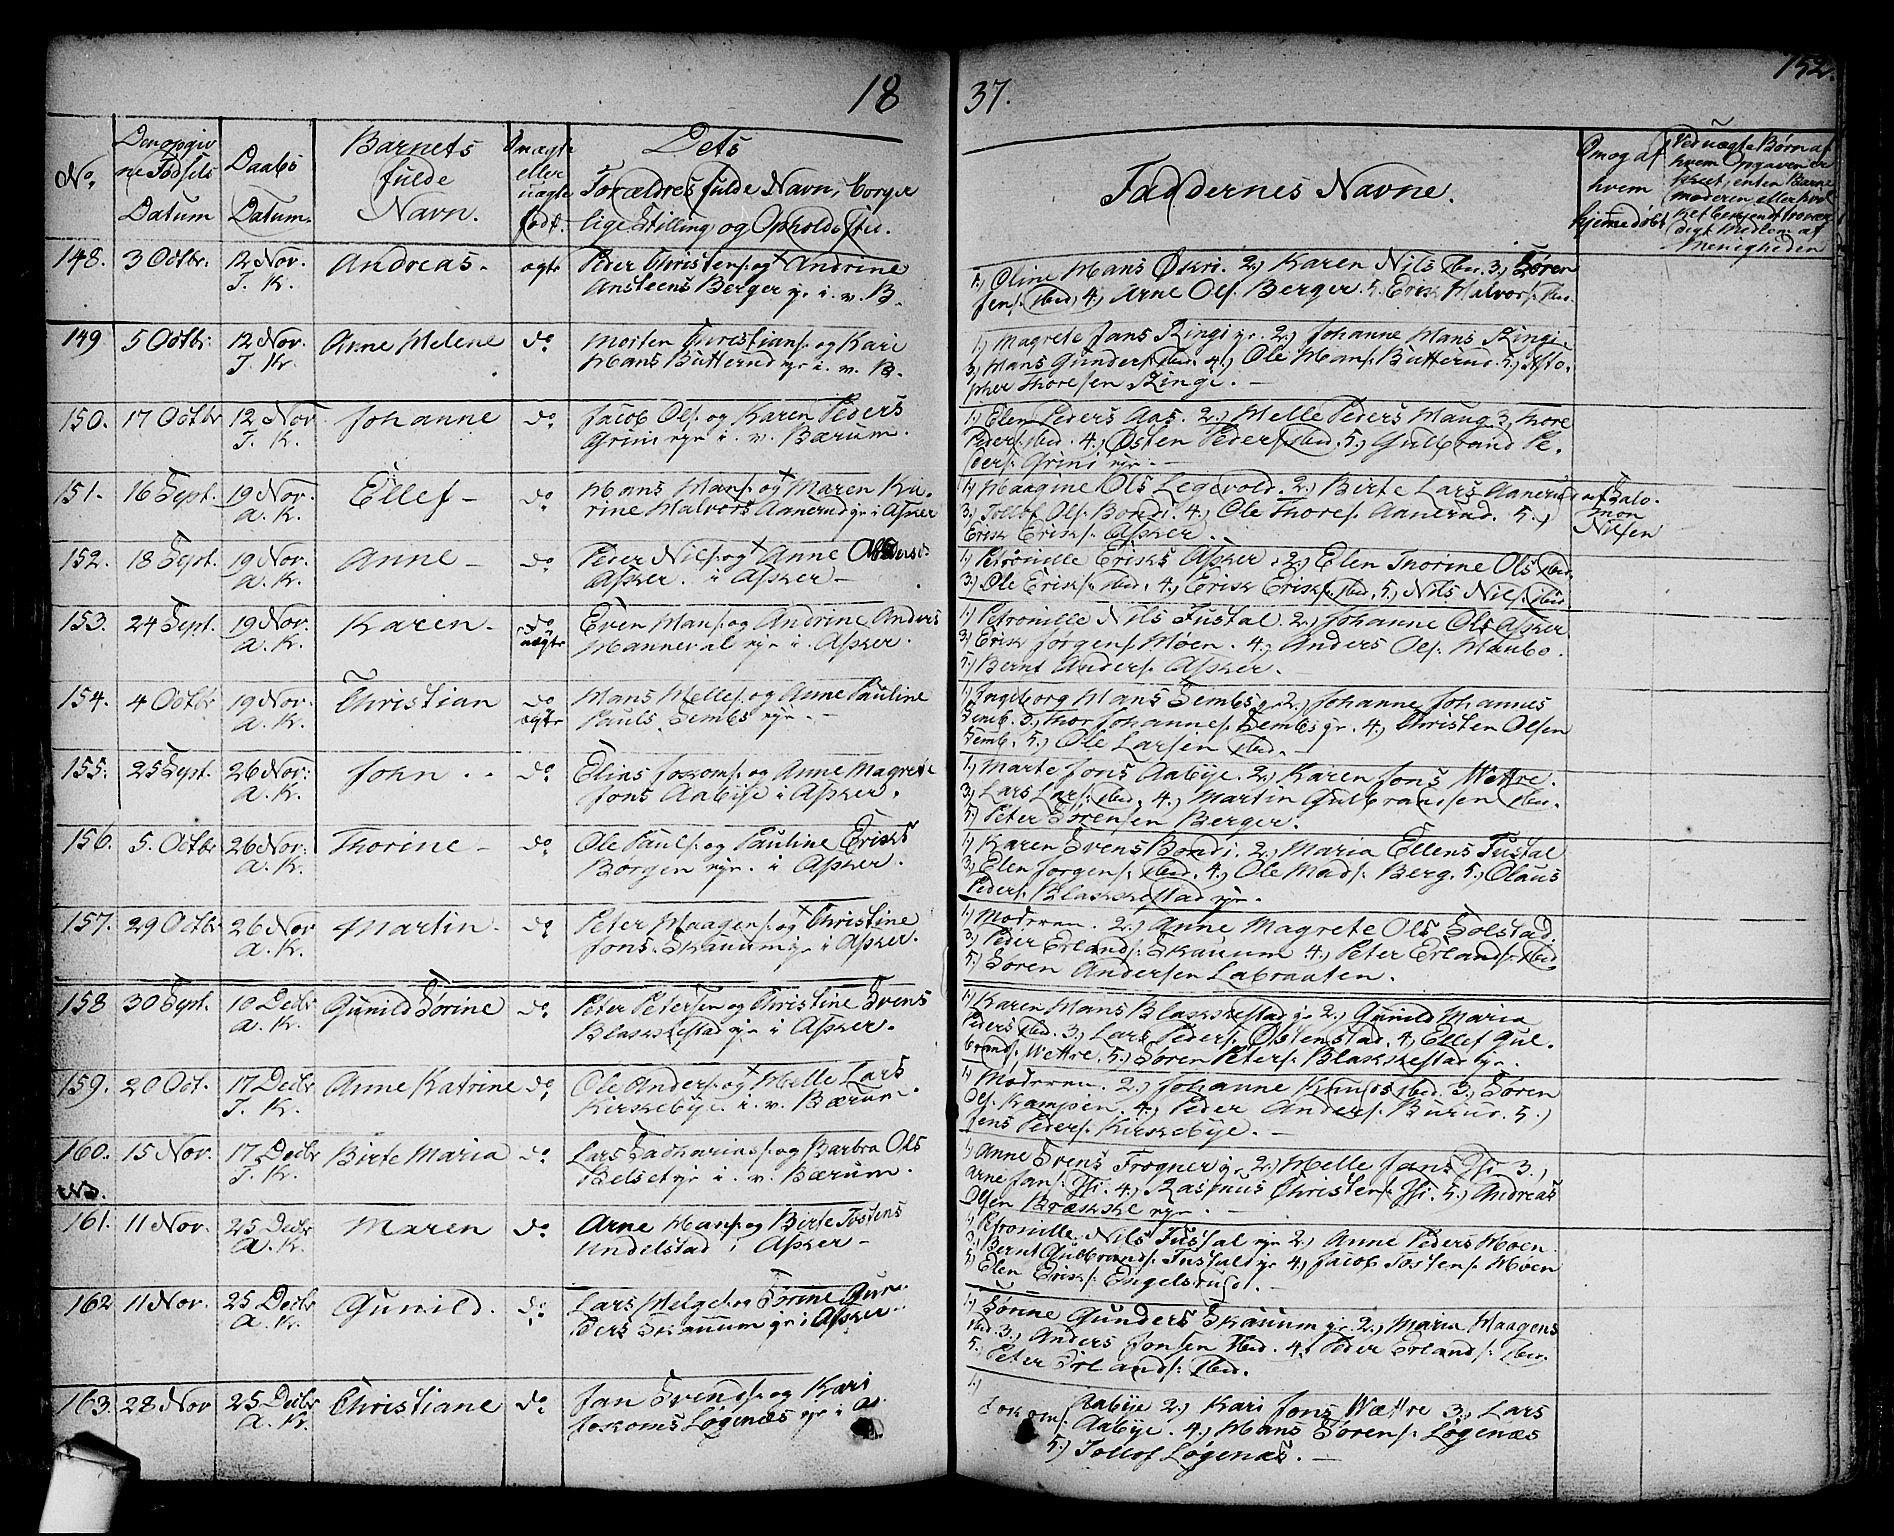 18 37.
152.
No.
Den opgiv
ne Fødsels
Datum
Daabs
Datum.
Barnets
fulde
Navn.
eller
uægte
født.
Dets
Forældres fulde Navn, borger
lige Stilling og Opholdssted.
Faddernes Navne.
Om og af
hvem
hjemmedøbt
Ved uægte Børn af
hvem Opgaven er
skeet, enten Barne
moderen eller hvil
ket bekjendt trovær
digt Medlem af
Menigheden
148. 3 Octbr. 12 Nov. Andreas. ægte Peder Christens. og Andrine
T. K. Ansteens Berger gr. i. v. B.
1.) Oline Hans Øskri. 2.) Karen Nils Ibid. 3.) Søren
Jens. Ibid. 4.) Arne Ols. Berger. 5. Erik Halvors. Ibid.
149 5 Octbr. 12 Nov. Anne Helene do Morten Christians. og Kari
T. Kr. Hans Butterud gr. i. v. B.
1.) Magrete Jans Ringi gr. 2.) Johanne Hans Ringi.
3.) Hans Gunders. Ibid. 4.) Ole Hans. Butterud. 5.) Isto-
pher Thoresen Ringi.
150. 17 Octbr 12 Nov Johanne do Jacob Ols. og Karen Peders
T. K. Grini eje i. v. Bærum.
1.) Elen Peders Aas. 2.) Helle Peders Haug. 3, Thore
Peders. Ibid. 4.) Østen Peders. Ibid. 5.) Gulbrand Pe-
ders. Grini eje.
151. 16 Sept. 19 Nov. Ellef do Hans Hans. og Maren Ka-
a. K. rine Halvors Aanerud gr i Asker
1.) Haagine Ols Legevold. 2.) Birte Lars Aanerud
3.) Tollof Ols. Bondi. 4.) Ole Thores. Aanerud. 5.)
Erik Eriks. Asker.
af Salo-
mon
Nilsen
152. 18 Sept. 19 Nov. Anne do Peder Nils. og Anne
a. K. Asker. i Asker
1.) Petronille Eriks Asker. 2.) Elen Thorine Ols Ibid.
3.) Ole Eriks. Ibid. 4.) Erik Eriks. Ibid. 5.) Nils Nils. Ibid.
153. 24 Sept. 19 Nov. Karen. do Even Hans. og Andrine Anders
a. K. uægte Hanneval eje i. Asker.
1.) Petronille Nils Fustal. 2.) Johanne Ols Asker
3.) Erik Jørgens. Moen. 4.) Anders Ols. Haubo.
5.) Bernt Anders. Asker.
154. 4 Octbr 19 Nov. Christian do Hans Helles. og Anne Pauline
a. K. ægte Pauls Sembs eje.
1.) Ingeborg Hans Sembs e. 2.) Johanne Johannes
Semb. 3.) Thor Johannes. Sembs gr. 4.) Christen Olsen
Semb. 5.) Ole Larsen Ibid.
155. 25 Sept. 26 Nov. John. do Elias Joskoms. og Anne Magrete
a. K. Jons Aabye i Asker.
1.) Marte Jons Aabye. 2.) Karen Jons Wettre.
3.) Lars Lars. Ibid. 4.) Martin Gulbrandsen Ibid.
5.) Peter Sørensen Berger.
156. 5. Octbr 26 Nov. Thorine do Ole Pauls. og Pauline Eriks
a. K. Børgen eje. i Asker.
1.) Karen Svens Bondi. 2.) Maria Ellens Fustal
3.) Elen Jørgens. Ibid. 4.) Ole Mads. Berg. 5.) Olaus
Peders. Blakkestad eje.
157. 29 Octbr 26 Nov Martin. do Peter Haagens. og Christine
a. K. Jons. Skauum gr i Asker.
1.) Moderen. 2.) Anne Magrete Ols Solstad.
3.) Peder Erlands. Skauum 4.) Peter Erlands. Ibid
5.) Søren Andersen Labraaten.
158 30 Sept. 10 Decbr Gunild Sørine do Peter Petersen og Christine Svens
a. K. Blakkestad gr i Asker.
1.) Karen Hans Blakkestad gr 2.) Gunild Maria
Peders Ibid. 3.) Lars Peders. Østenstad. 4.) Ellef Gul-
brands. Wettre. 5.) Søren Peters. Blakkestad gr.
159. 20 Oct. 17 Decbr Anne Katrine do Ole Anders. og Helle Lars
T. K. Kirkebye. i. v. Bærum.
1.) Moderen. 2.) Johanne Knuds Ibid. 3.) Søren
Ols. Kampen. 4.) Peder Anders. Burud. 5.)
Jens Peders. Kirkebye.
160. 15 Nov. 17 Decbr Birte Maria do Lars Sakarias. og Barbra Ols
NB. T. K. Belset gr i. v. Bærum.
1.) Anne Svens Frogner gr 2.) Helle Jans Isi 3.)
Arne Jans. Isi. 4.) Rasmus Christens. Isi. 5.) Andreas
Olsen Brække eje.
161. 11 Nov. 25 Decbr Maren do Arne Hans. og Birte Tostens
a. K. Undelstad i Asker
1.) Petronille Nils Fustal eje 2.) Anne Peders Hoen
3.) Bernt Gulbrands. Fustald gr 4.) Jacob Tostens. Hoen
5.) Elen Eriks. Engelsrud.
162 11 Nov. 25 Decbr Gunild. do Lars Helges. og Sørine Gun-
a. K. ders Skauum gr i Asker
1.) Sønne Gunders Skauum gr 2.) Maria Haagens
Ibid. 3.) Anders Jonsen Ibid. 4.) Peder Erlands. Ibid.
5.) Peter Erlands. Ibid.
163. 28 Nov 25 Decbr Christiane do Jan Svends. og Kari
a. K. Joskoms Løgenæs gr i A.
1.)
Aabye 2.) Kari Jons Wettre 3.) Lars
Joskoms. Aabye. 4.) Hans Sørens. Løgenæs
5.) Tollof Løgenæs.